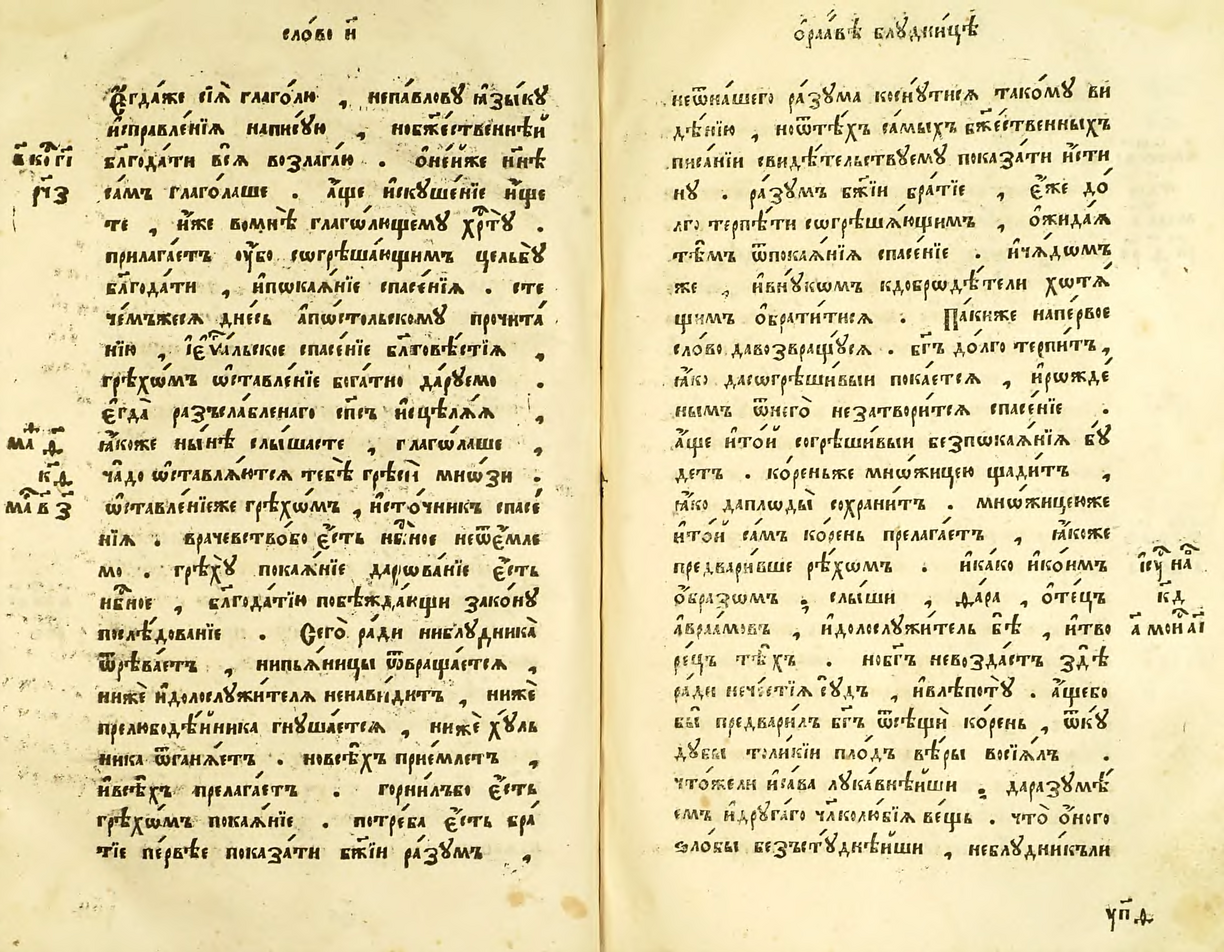 сло́во и҃
Е҆гда́же сїѧ̀ глаго́лю , непа́вловꙋ ꙗ҆зы́кꙋ
и҆справле́нїѧ напи́сꙋю , нобж҃е́ственнѣй
блгⷣода́ти всѧ̀ возлага́ю . ѻ҆не́йже нн҃ѣ
са́мъ глаго́лаше . а҆́ще и҆скꙋше́нїе и҆́ще
те , и҆́же вомнѣ̀ глаго́лющемꙋ хрⷭ҇тꙋ̀ .
прилага́етъ оу҆́бо согрѣша́ющимъ цельбꙋ̀
блгⷣода́ти , и҆пѡкаѧ́нїе спасе́нїѧ . сте
че́мъжесѧ дне́сь а҆пѡ́стольскомꙋ прочита́
нїю , і҆еѵⷢ҇а́льское спасе́нїе блгⷣовѣ́стїѧ ,
грѣхѡ́мъ ѡ҆ставле́нїе бога́тно да́рꙋемо .
є҆гда̀ разъсла́бленаго сп҃съ и҆сцѣлѧ́ѧ ,
ꙗ҆́коже ны́нѣ слы́шасте , глаго́лаше ,
ча́до ѡ҆ставлѧ́ютсѧ тебѣ̀ грѣсѝ мнѡ́зи .
ѡ҆ставле́нїеже грѣхѡ́мъ , и҆сто́чникъ спасе́
нїѧ . враче́вствобо є҆́сть нбⷭ҇ное неѿе́мле
мо . грѣхꙋ̀ покаѧ́нїе дарѡва́нїе є҆́сть
нбⷭ҇ное , блгⷣода́тїю побѣжда́ющи зако́нꙋ
послѣ́дованїе . Сего̀ ра́ди ниблꙋ́дника
ѿрѣва́етъ , нипьѧ́ницы ѿвраща́етсѧ ,
нижѐ и҆долослꙋжи́телѧ ненави́дитъ , нижѐ
прелюбодѣ́йника гнꙋша́етсѧ , нижѐ хꙋ́ль
ника ѿганѧ́етъ . новсѣ́хъ прїе́млетъ ,
и҆всѣ́хъ прелага́етъ . горни́лъбо є҆́сть
грѣхѡ́мъ покаѧ́нїе . потре́ба є҆́сть бра́
тїе пе́рвѣе показа́ти бж҃їи ра́зꙋмъ ,
в҃ ко г҃і
рч҃з
ма д҃
к҃д
ма в҃ з҃
ѻ҆раа́вѣ блꙋдни́цѣ
неѿна́шего ра́зꙋма коснꙋ́тисѧ тако́мꙋ ви́
дѣ́нїю , ноѿтѣ́хъ са́мыхъ бж҃е́ственныхъ
писа́нїи свидѣ́тельствꙋемꙋ показа́ти и҆́сти
нꙋ . ра́зꙋмъ бж҃їи бра́тїе , є҆́же до́
лго терпѣ́ти согрѣшѧ́ющимъ , ѻ҆жида́ѧ
тѣ́мъ ѿпокаѧ́нїѧ спасе́нїе . и҆чѧ́дѡмъ
же , и҆внꙋ́кѡмъ кдобрѡдѣ́тели хотѧ́
щимъ ѻ҆брати́тисѧ . Па́киже напе́рвое
сло́во давозвращꙋ́сѧ . бг҃ъ до́лго терпи́тъ ,
ꙗ҆́ко дасогрѣши́выи пока́етсѧ , и҆рѡжде́
нымъ ѿнего̀ незатвори́тсѧ спасе́нїе .
а҆́ще и҆то́й согрѣши́выи безпѡкаѧ́нїѧ бꙋ́
детъ . ко́реньже мнѡ́жицею щади́тъ ,
ꙗ҆́ко даплѡды̀ сохрани́тъ . мнѡ́жицеюже
и҆то́й са́мъ ко́рень прелага́етъ , ꙗ҆́коже
предвари́вше рѣ́хѡмъ . и҆ка́ко и҆ко́имъ
ѻ҆́бразѡмъ ; слы́ши , фа́ра , ѻ҆те́цъ
а҆враа́мовъ , и҆долослꙋжи́тель бѣ̀ , и҆тво
ре́цъ тѣ́хъ . нобг҃ъ невозда́стъ здѣ̀
ра́ди нече́стїѧ сꙋ́дъ , и҆влѣ́потꙋ . а҆́щебо
бы̀ предвари́лъ бг҃ъ ѿсѣщѝ ко́рень , ѿкꙋ́
дꙋбы толи́кїи пло́дъ вѣ́ры восїѧ́лъ .
что́жели и҆са́ва лꙋка́внѣйши ; даразꙋмѣ́
емъ и҆дрꙋга́го чл҃колю́бїѧ ве́щь . что̀ ѻ҆́ного
ѕло́бы безъстꙋ́днѣйши , неблꙋ́дникъли
і҆сꙋ на
к҃д
а҃ мои а҃і
ꙋп҃д